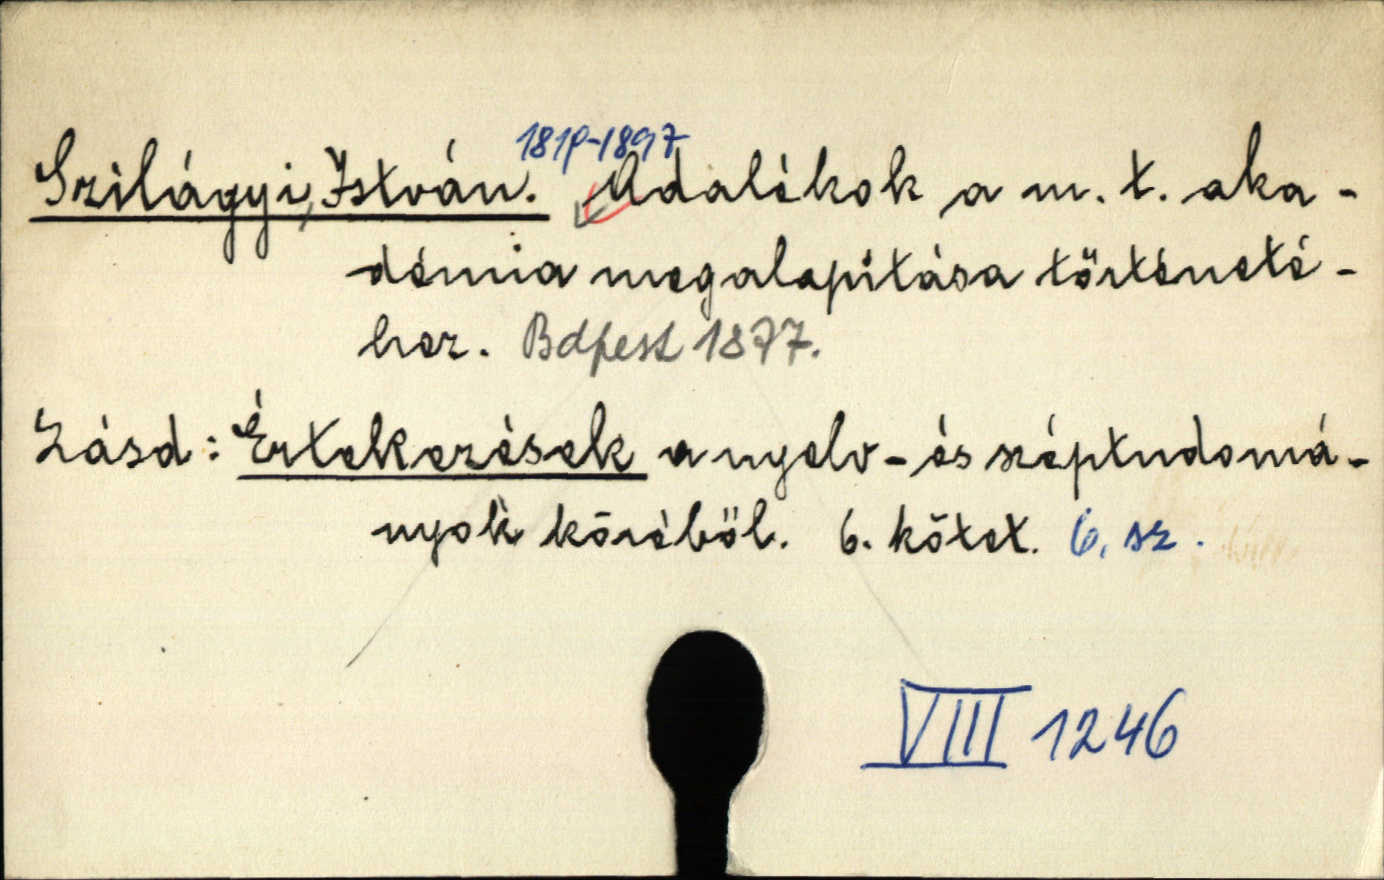 1819-1897
Szilágyi, István. Adalékok a m. t. aka-
démia megalapítása történeté-
hez. Bdpest 1877.
Lásd: Értekezések a nyelv- és széptudomá-
nyok köréből. 6. kötet. 6. sz.
VIII 1246